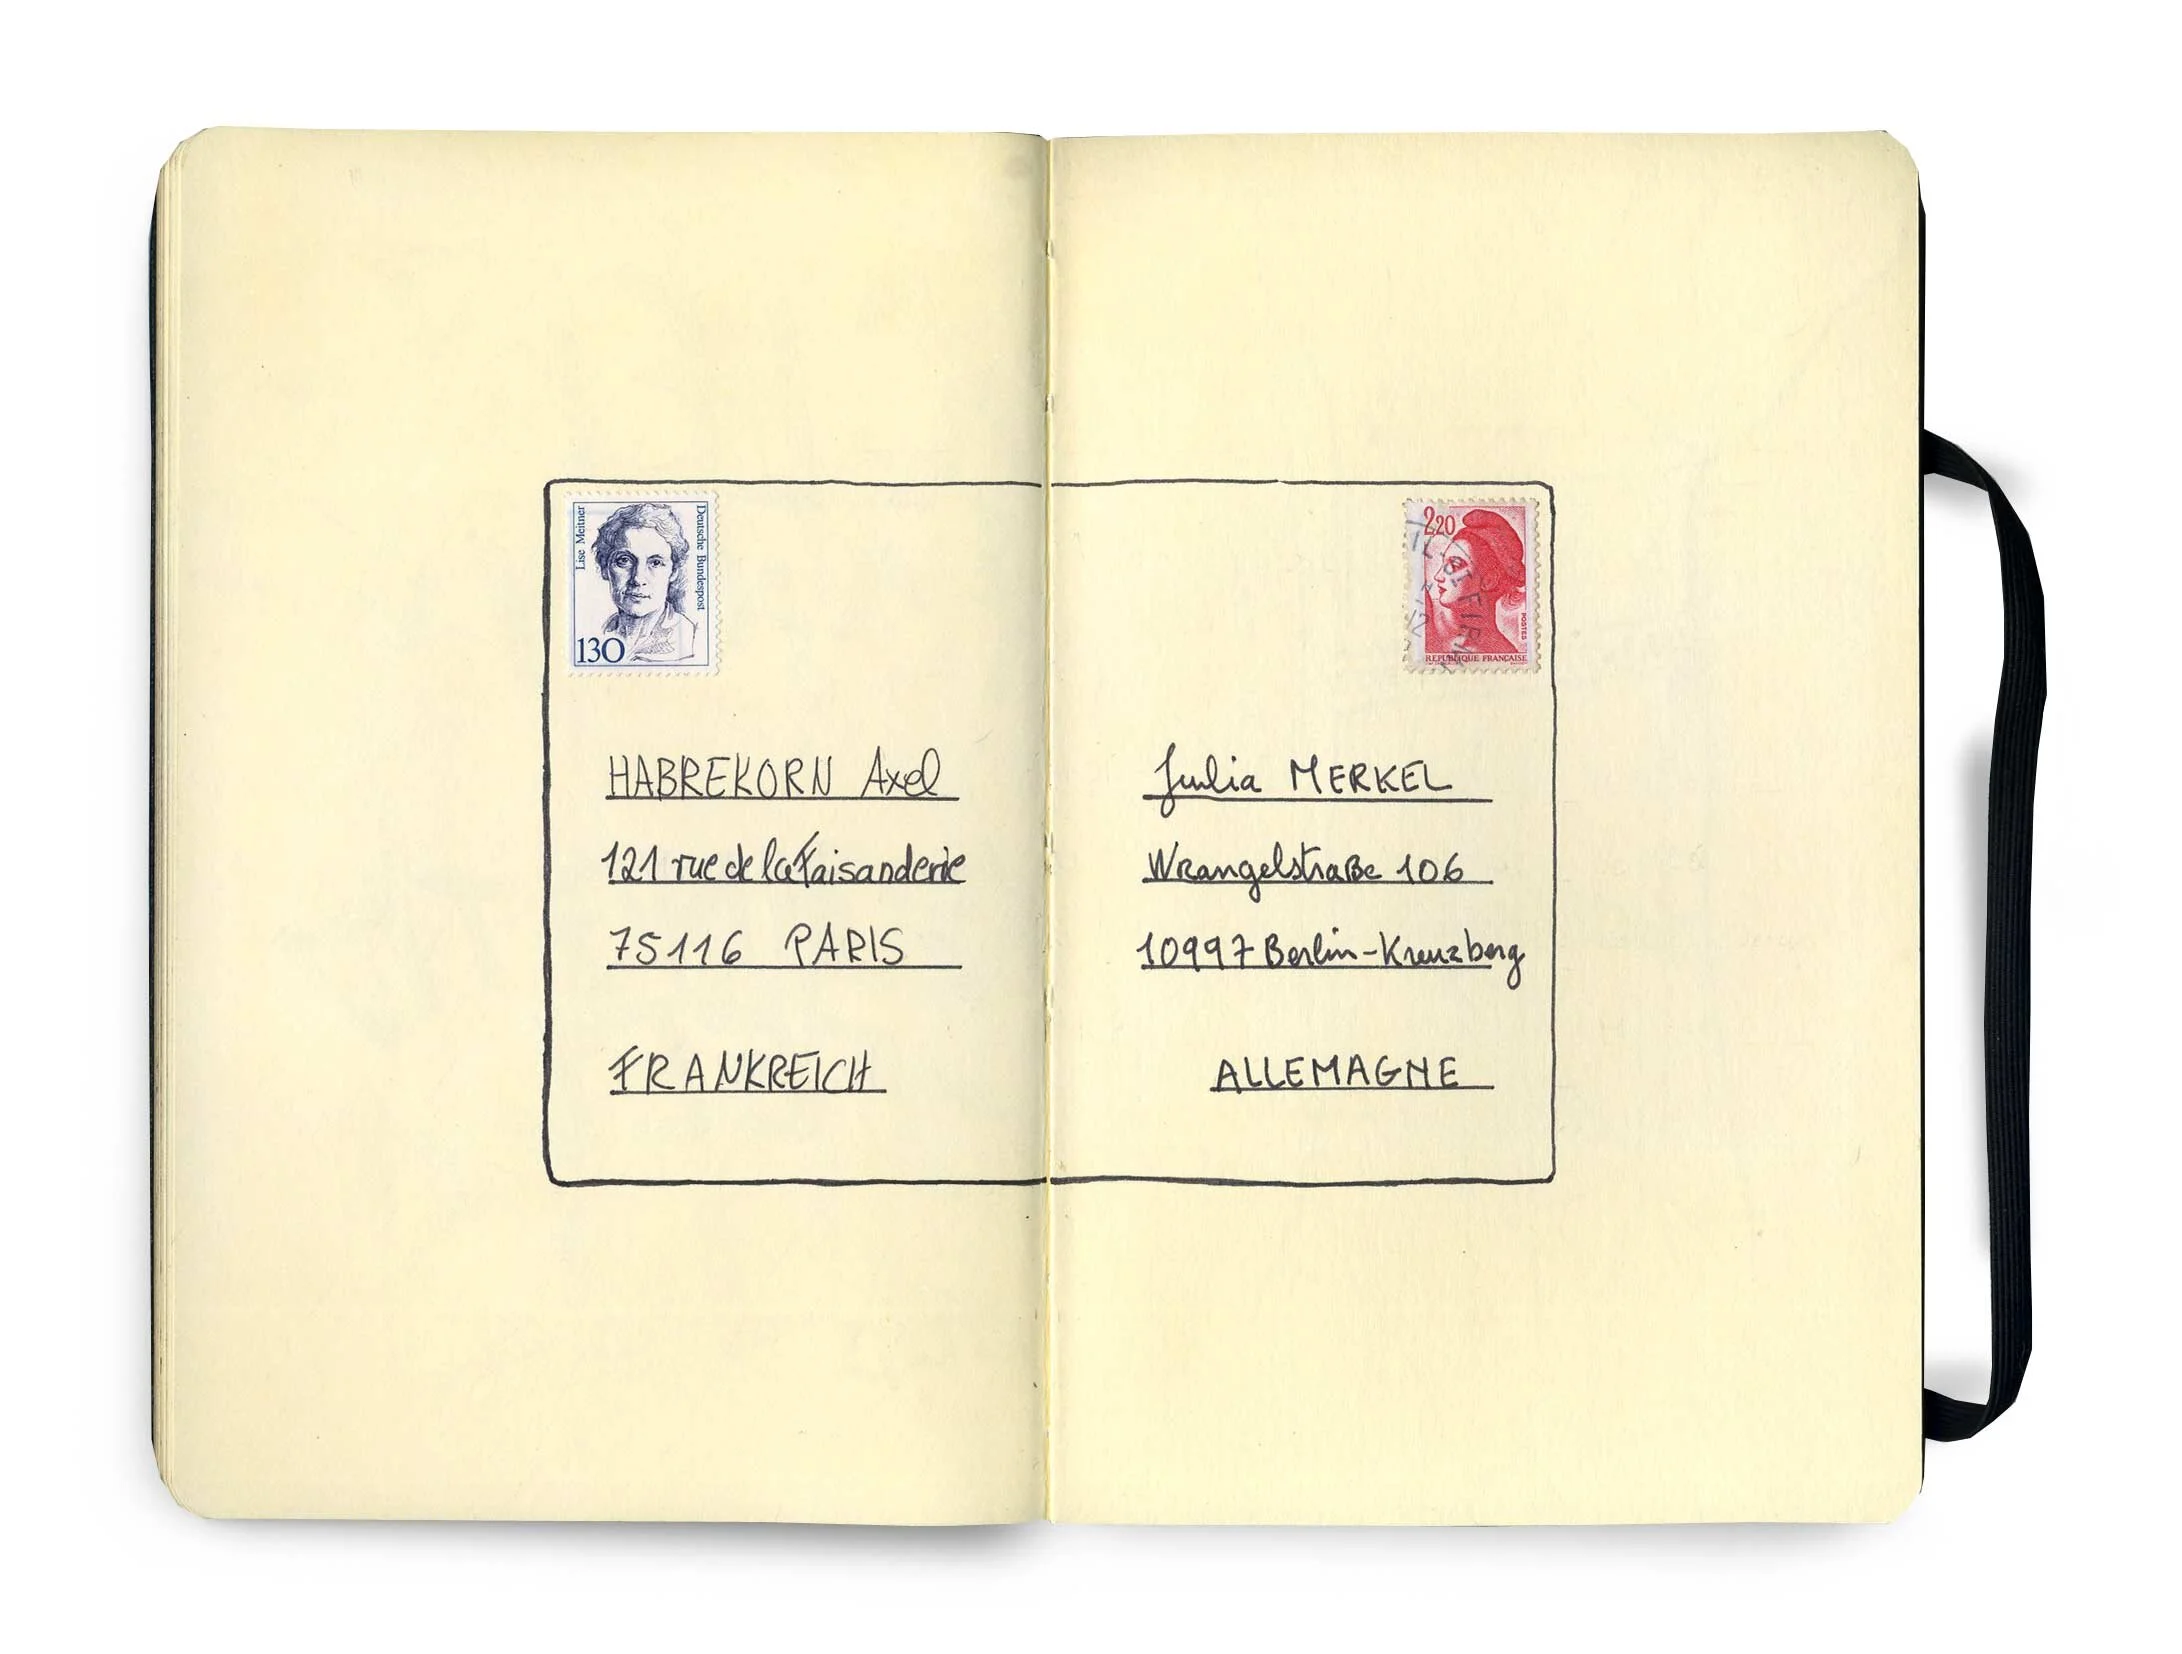 Lise Meitner
Deutsche Bundespost
130
HABREKORN Axel
121 rue de la Faisanderie
75116 PARIS
FRANKREICH
2,20
POSTES
REPUBLIQUE FRANÇAISE
Julia MERKEL
Wrangelstraße 106
10997 Berlin-Kreuzberg
ALLEMAGNE